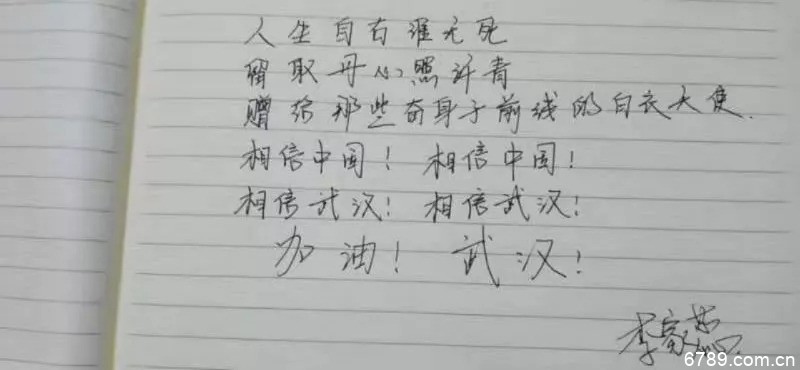 人生自古谁无死
留取丹心照汗青
赠给那些奋身于前线的白衣天使.
相信中国！ 相信中国！
相信武汉！ 相信武汉！
加油！ 武汉！
李
6789.com.cn